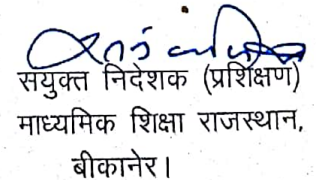 सयुक्त निदेशक (प्रशिक्षण)
माध्यमिक शिक्षा राजस्थान,
बीकानेर।